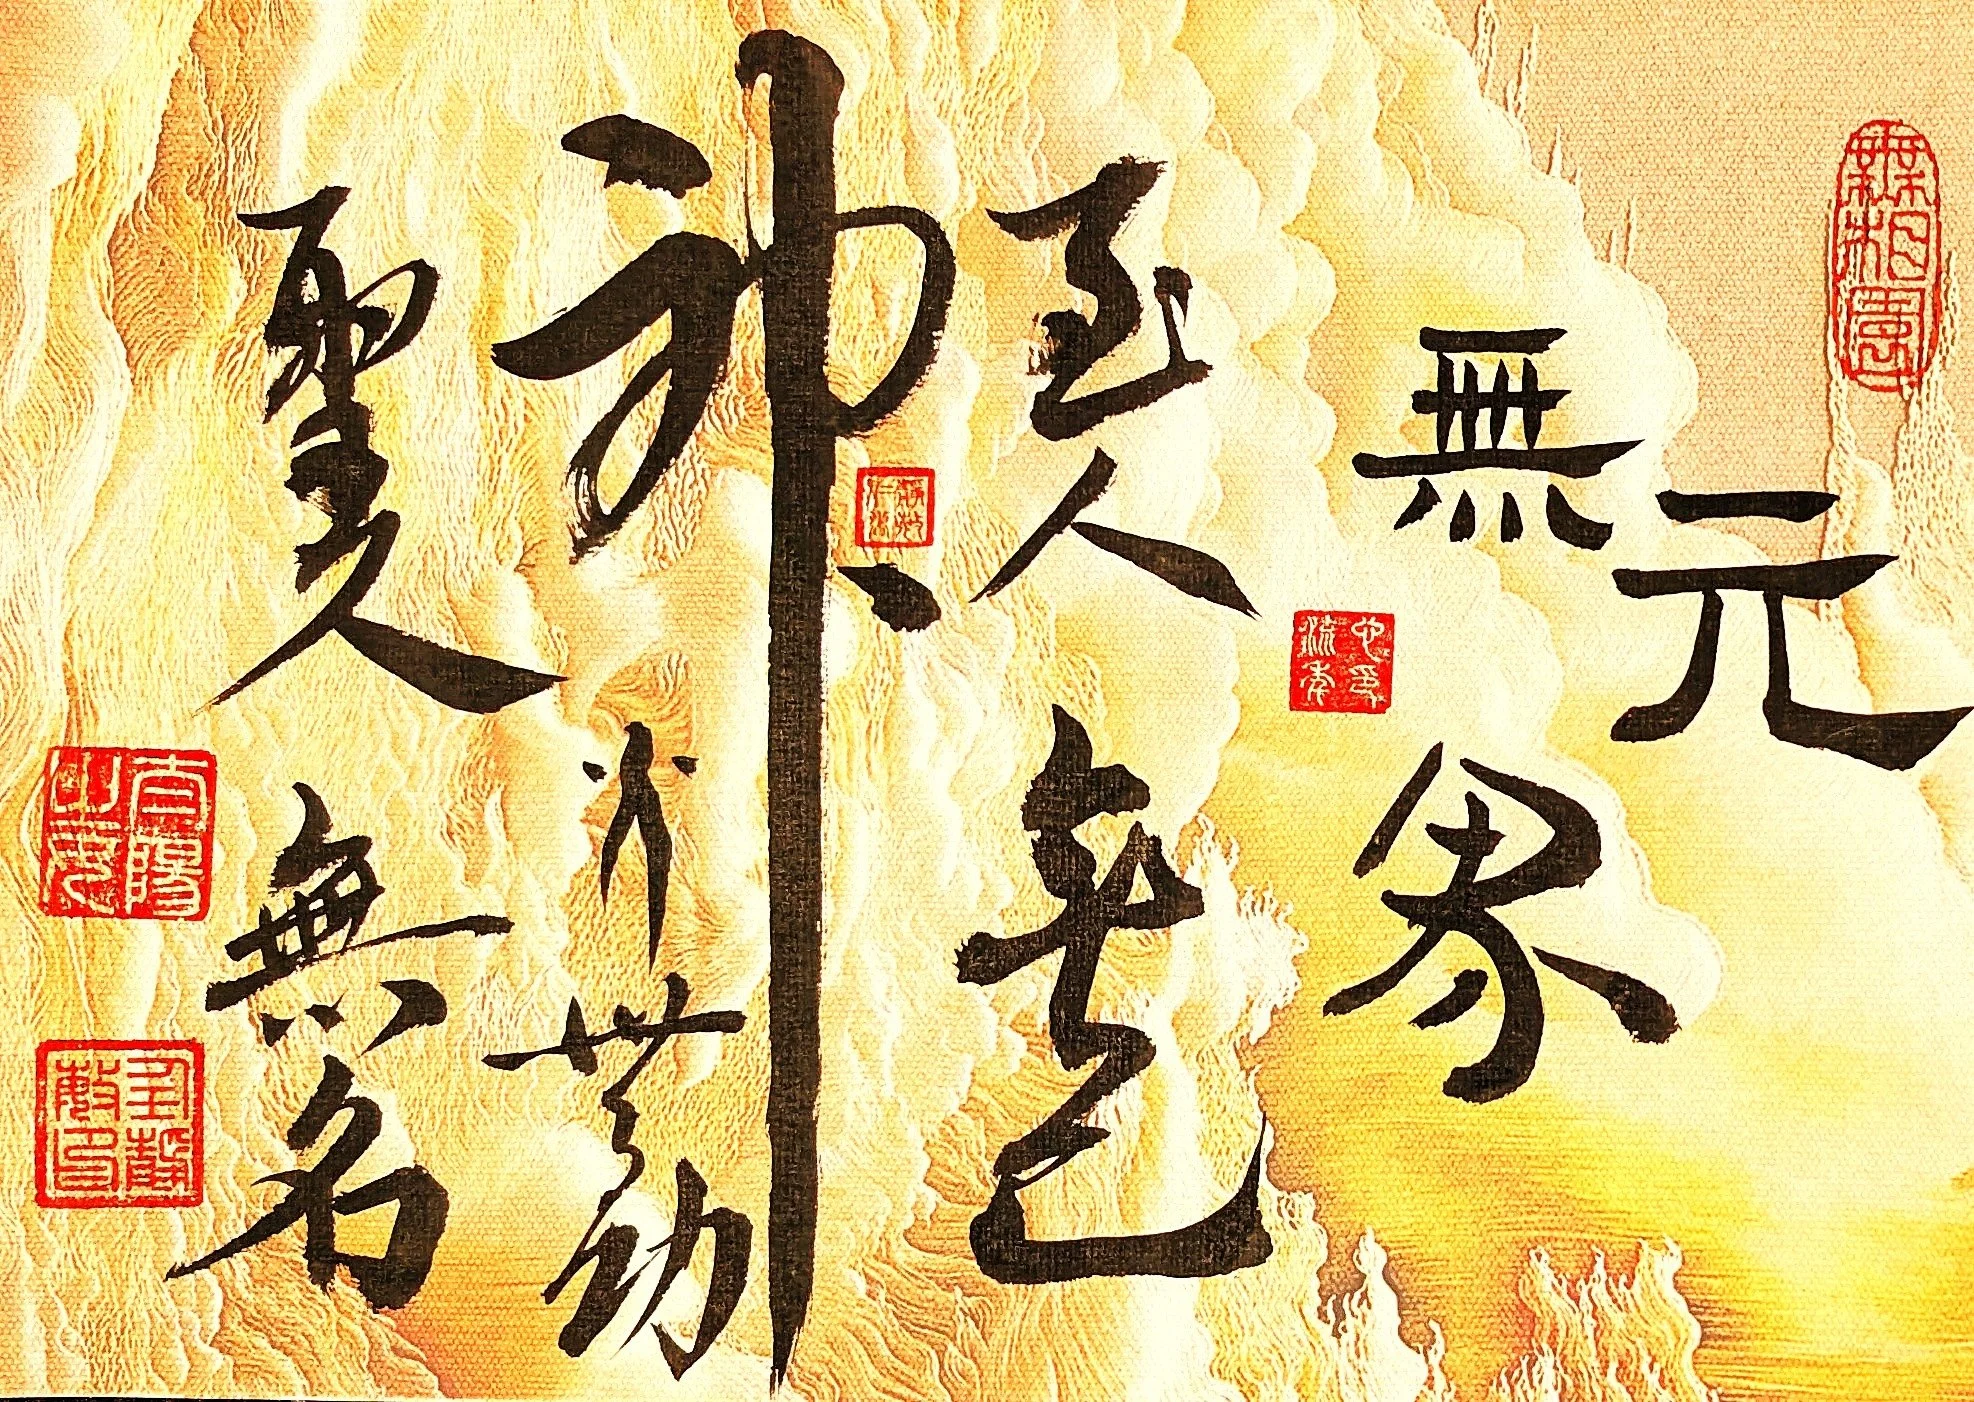 元
無界
至人無己
神人無功
聖人無名